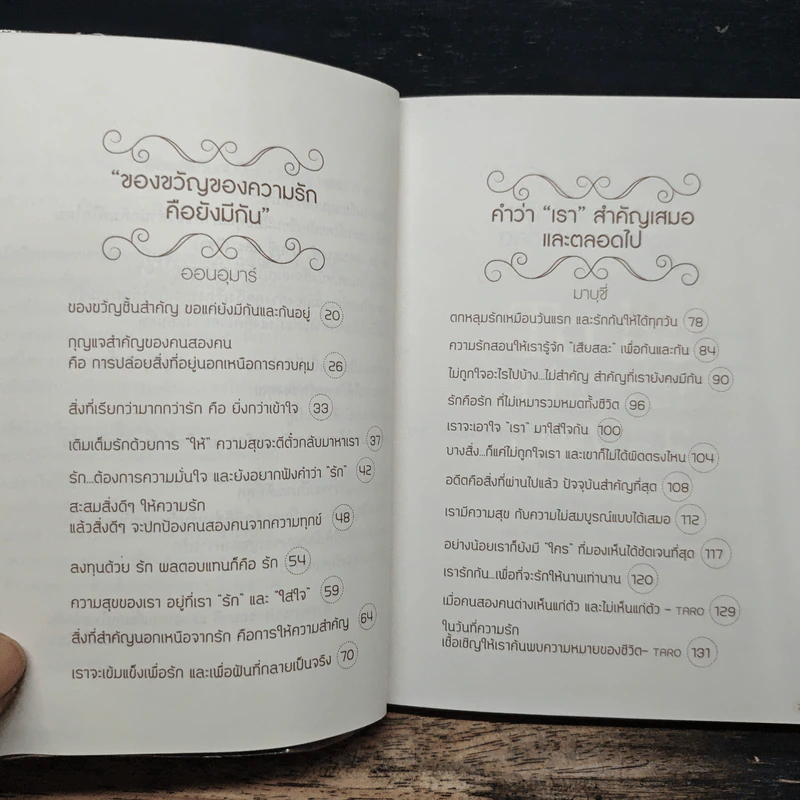 “ของขวัญของความรัก
คือยังมีกัน”
ออนอุมาร์
ของขวัญชิ้นสำคัญ ขอแค่ยังมีกันและกันอยู่ 20
กุญแจสำคัญของคนสองคน
คือ การปล่อยสิ่งที่อยู่นอกเหนือการควบคุม 26
สิ่งที่เรียกว่ามากกว่ารัก คือ ยิ่งกว่าเข้าใจ 33
เติมเต็มรักด้วยการ “ให้” ความสุขจะดีตั๋วกลับมาหาเรา 37
รัก...ต้องการความมั่นใจ และยังอยากฟังคำว่า “รัก” 42
สะสมสิ่งดีๆ ให้ความรัก
แล้วสิ่งดีๆ จะปกป้องคนสองคนจากความทุกข์ 48
ลงทุนด้วย รัก ผลตอบแทนก็คือ รัก 54
ความสุขของเรา อยู่ที่เรา “รัก” และ “ใส่ใจ” 59
สิ่งที่สำคัญนอกเหนือจากรัก คือการให้ความสำคัญ 64
เราจะเข้มแข็งเพื่อรัก และเพื่อฝันที่กลายเป็นจริง 70
คำว่า “เรา” สำคัญเสมอ
และตลอดไป
มาบุชี่
ตกหลุมรักเหมือนวันแรก และรักกันให้ได้ทุกวัน 78
ความรักสอนให้เรารู้จัก “เสียสละ” เพื่อกันและกัน 84
ไม่ถูกใจอะไรไปบ้าง...ไม่สำคัญ สำคัญที่เรายังคงมีกัน 90
รักคือรัก ที่ไม่เหมารวมหมดทั้งชีวิต 96
เราจะเอาใจ “เรา” มาใส่ใจกัน 100
บางสิ่ง...ก็แค่ไม่ถูกใจเรา และเขาก็ไม่ได้ผิดตรงไหน 104
อดีตคือสิ่งที่ผ่านไปแล้ว ปัจจุบันสำคัญที่สุด 108
เรามีความสุข กับความไม่สมบูรณ์แบบได้เสมอ 112
อย่างน้อยเราก็ยังมี “ใคร” ที่มองเห็นได้ชัดเจนที่สุด 117
เรารักกัน...เพื่อที่จะรักให้นานเท่านาน 120
เมื่อคนสองคนต่างเห็นแก่ตัว และไม่เห็นแก่ตัว - TARO 129
ในวันที่ความรัก
เชื้อเชิญให้เราค้นพบความหมายของชีวิต- TARO 131